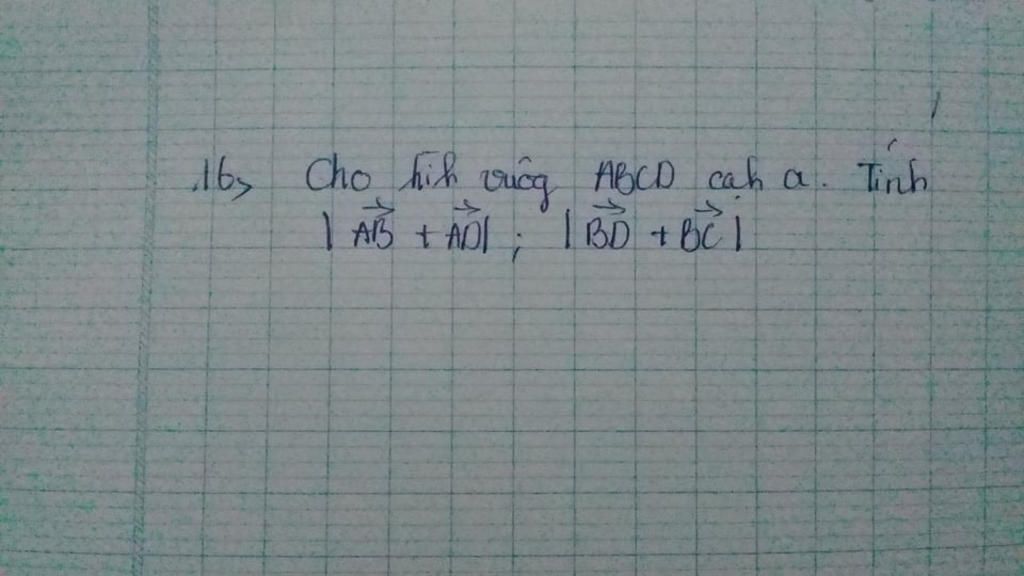 16, Cho hìh vuôg ABCD cạh a. Tính
|AB→ + AD→| ; |BD→ + BC→|